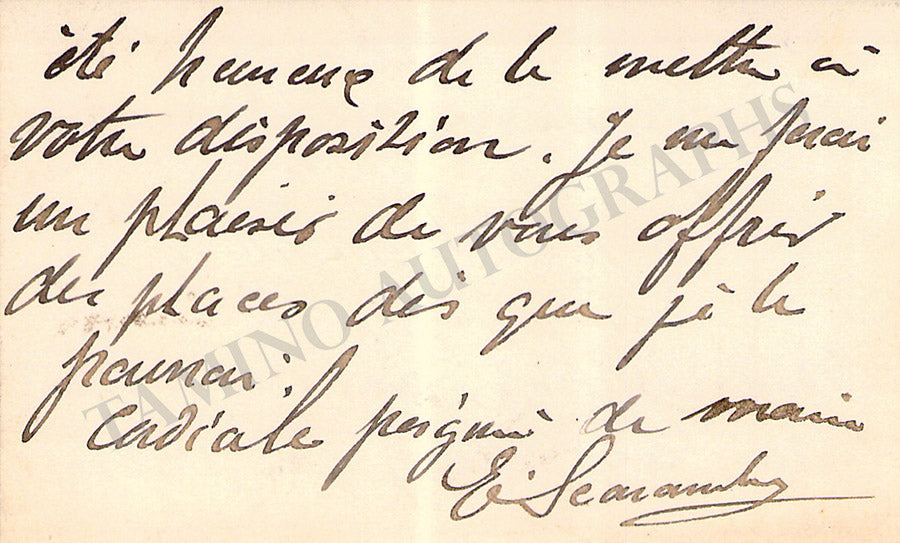 été heureux de le mettre à
votre disposition. Je me ferai
un plaisir de vous offrir
des places dès que je le
pourrai.
Cordiale poignée de main
E. Scaramberg
TAMINO AUTOGRAPHS